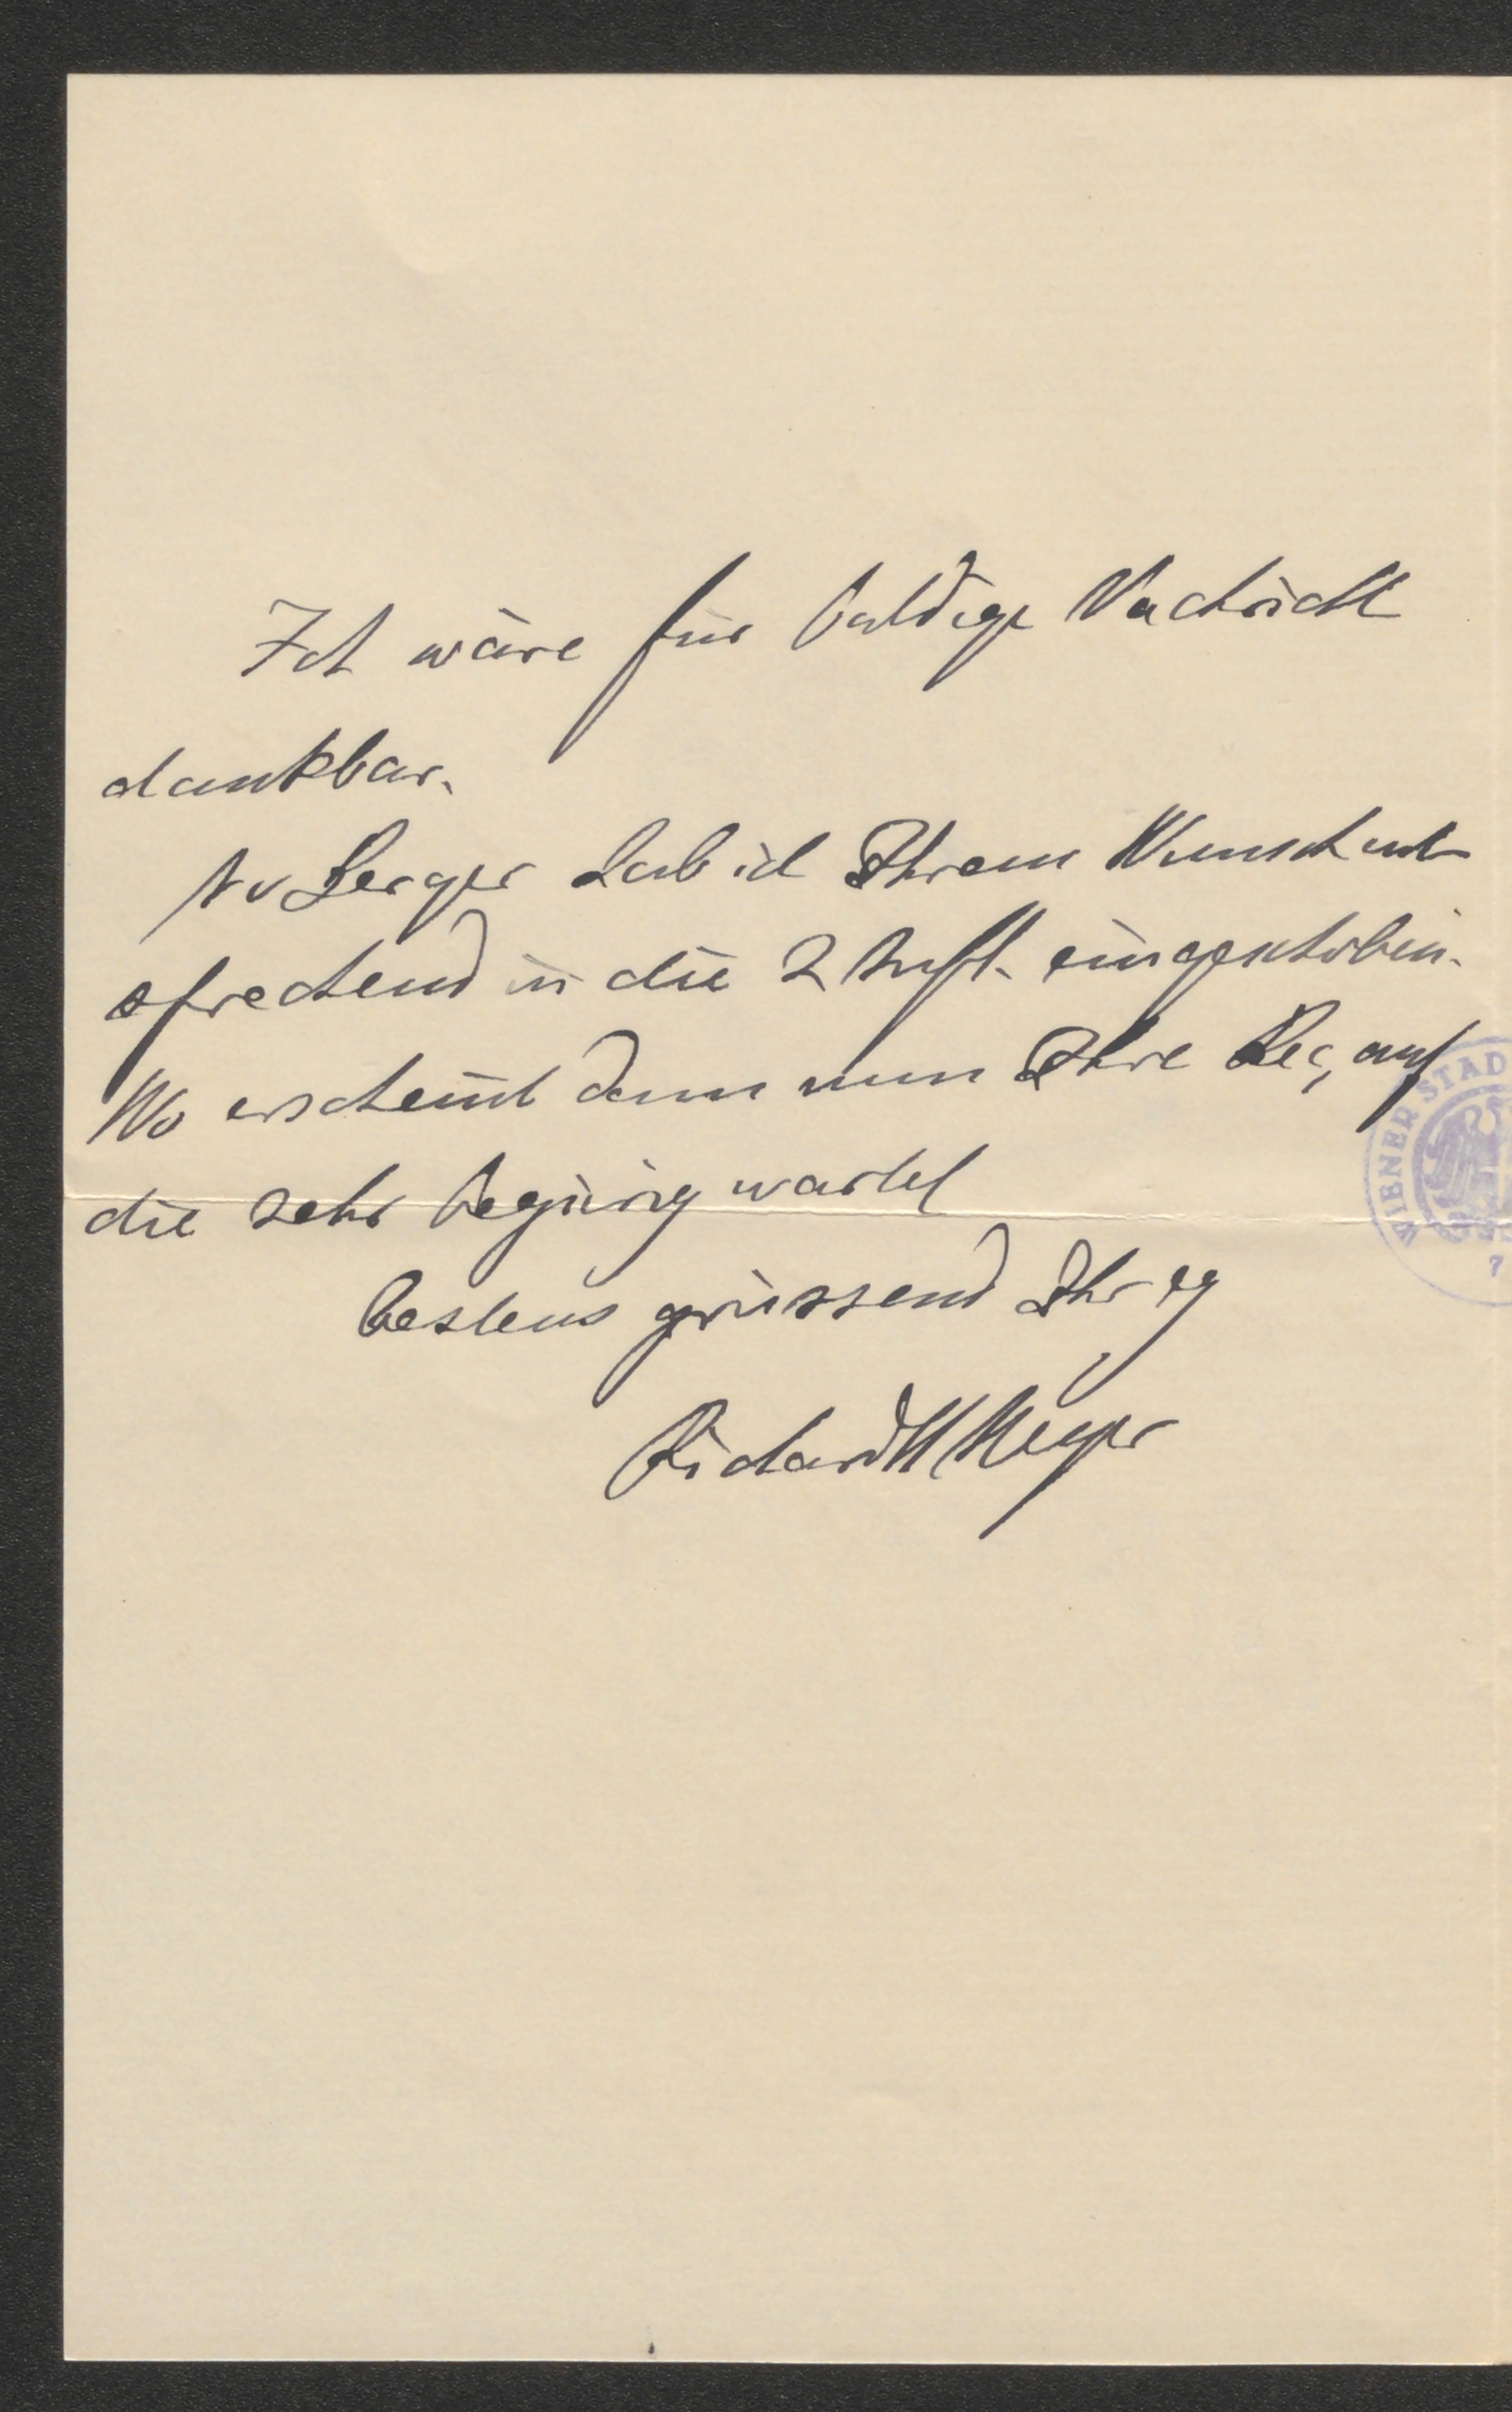 Ich wäre für baldige Nachricht
dankbar.
Av Berger hab ich Ihrem Wunsch ent
sprechend in die 2 Aufl. eingeschoben.
Wo erscheint denn nun Ihre Rec, auf
die sehr begierig wartet
bestens grüssend Ihr eg
Richard M Meyer
WIENER STAD
7